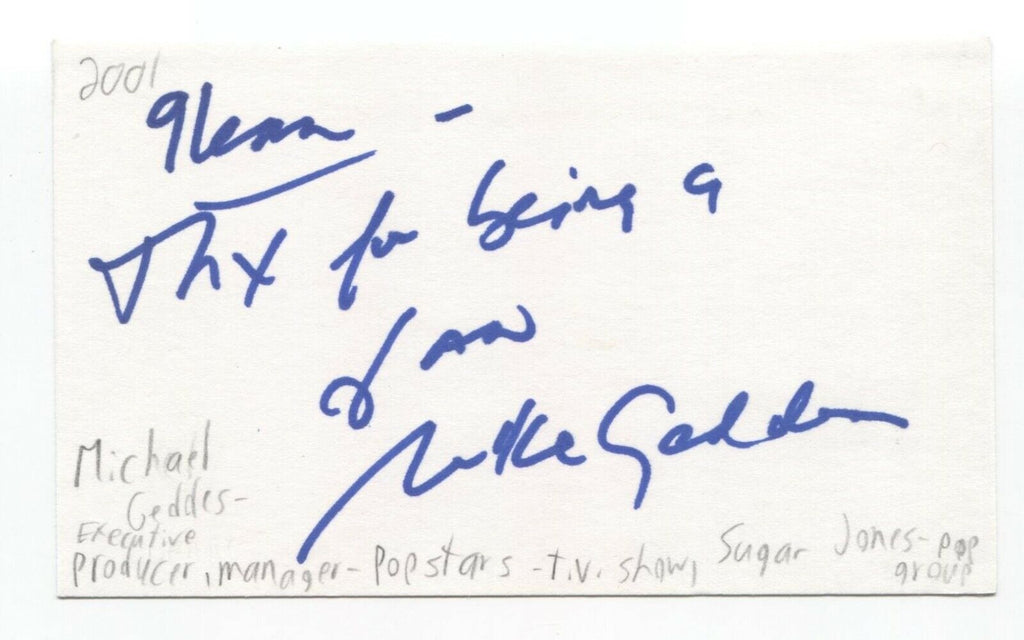 2001
Glenn -
Thx for being a
fan
Mike Geddes
Michael
Geddes-
Executive
Producer, manager - Popstars - t.v. show,
Sugar Jones - pop
group